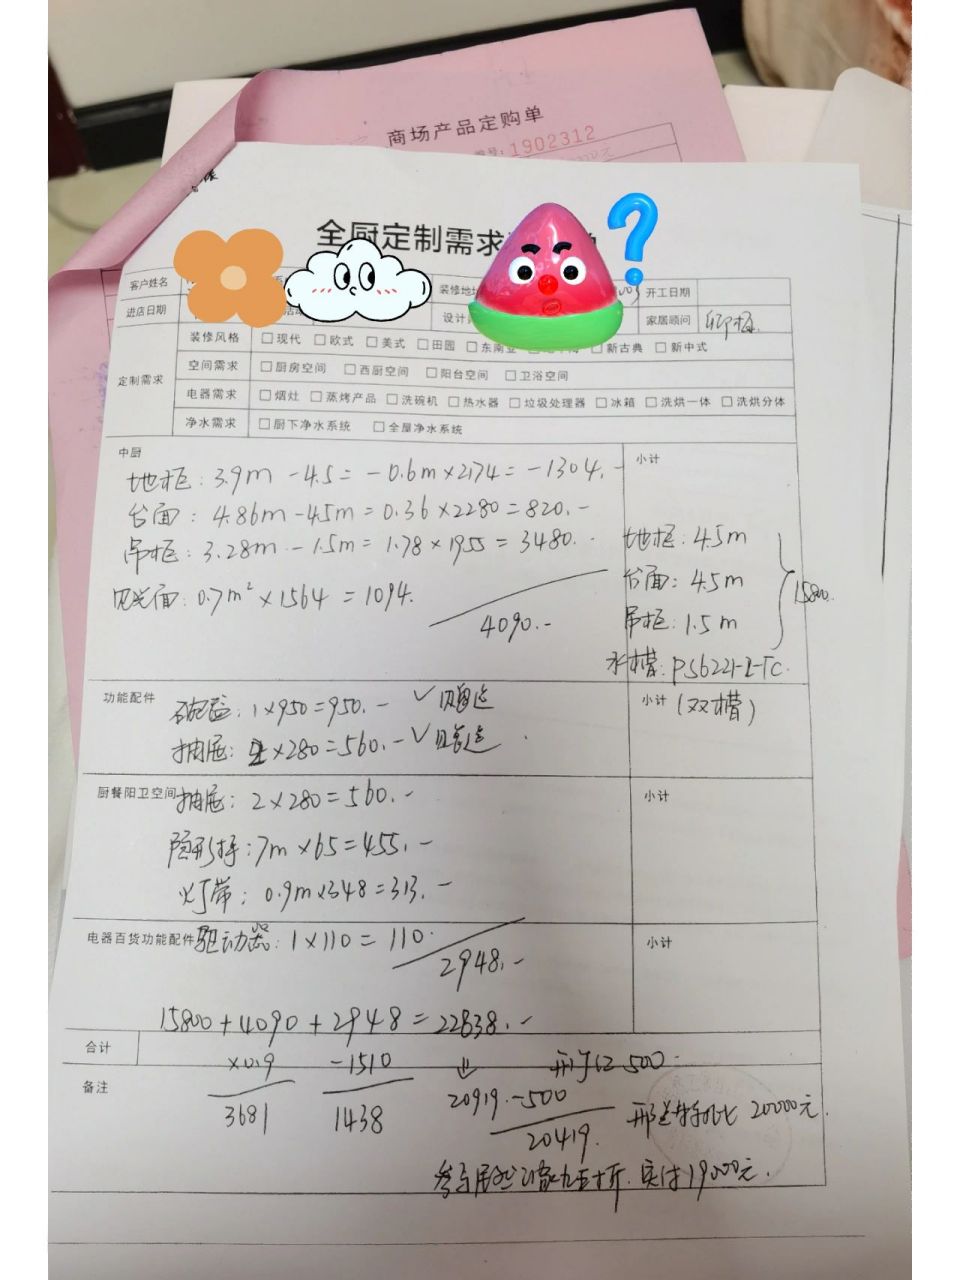 商场产品定购单
1902312
全厨定制需求
客户姓名
装修地址
开工日期
进店日期
活动
设计
家居顾问
定制需求
装修风格 □现代 □欧式 □美式 □田园 □东南亚 □新古典 □新中式
空间需求 □厨房空间 □西厨空间 □阳台空间 □卫浴空间
电器需求 □烟灶 □蒸烤产品 □洗碗机 □热水器 □垃圾处理器 □冰箱 □洗烘一体 □洗烘分体
净水需求 □厨下净水系统 □全屋净水系统
中厨
小计
地柜：3.9m -4.5= -0.6m×2174= -1304.-
台面：4.86m-4.5m=0.36×2280=820.-
吊柜：3.28m-1.5m=1.78×1955=3480.-
见光面：0.7m²×1564=1094.
4090.-
地柜：4.5m
台面：4.5m
吊柜：1.5m
15800.
水槽：PS6221-2-TC.
(双槽)
功能配件
小计
碗篮：1×950=950.- ✓ 赠送
抽屉：2×280=560.- ✓ 赠送
厨餐阳卫空间
小计
抽屉：2×280=560.-
隐形拉手：7m×65=455.-
灯带：0.9m×348=313.-
电器百货功能配件
小计
驱动器：1×110=110.
2948.-
15800+4090+2948=22838.-
合计
×0.9 -1510 ⇓ 500.-
备注
3681 1438 20919.-500
20419. 20000元.
参与 实付19000元.